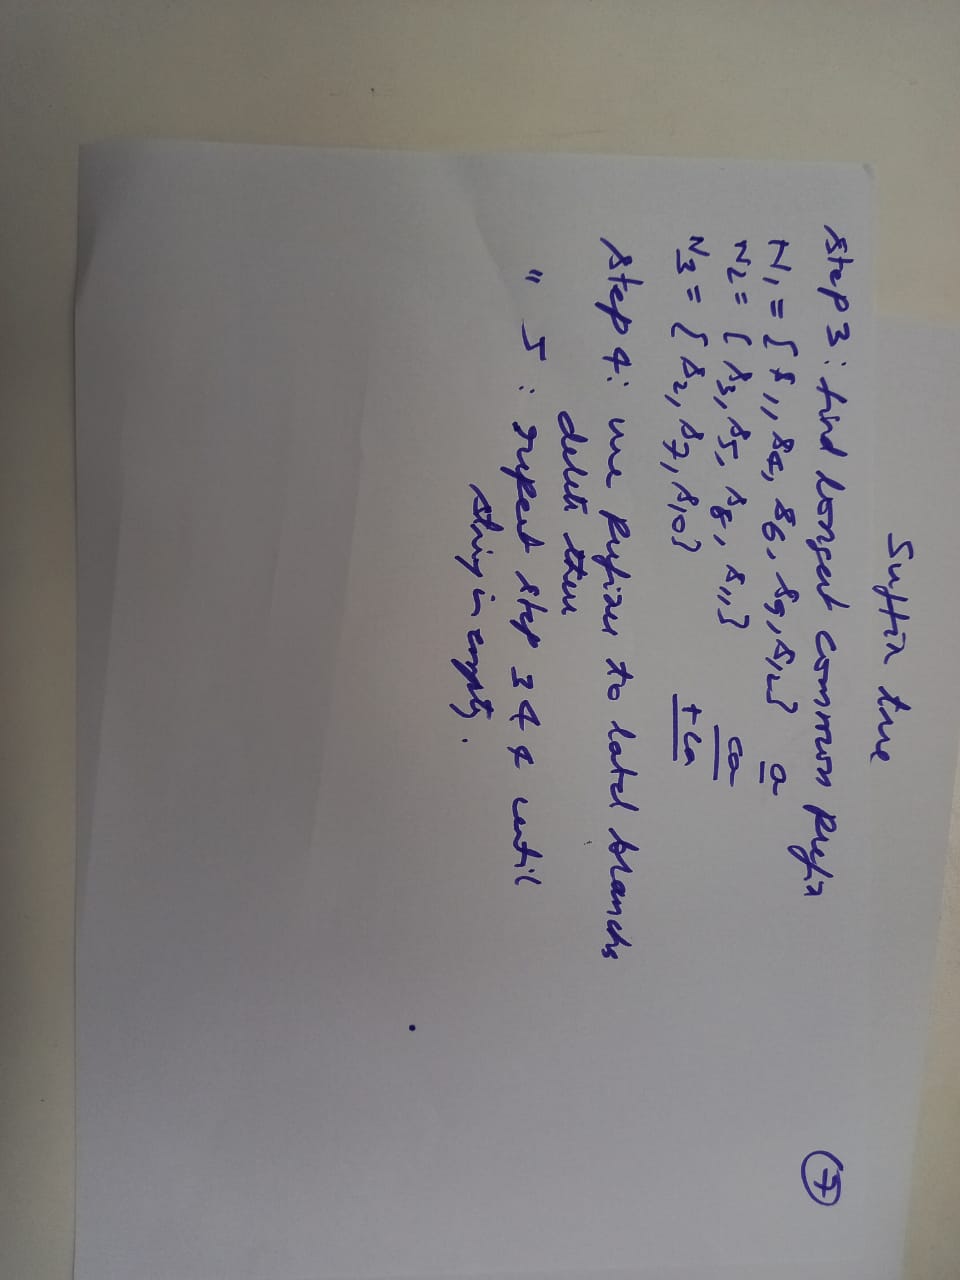 Suffix tree
7
Step 3: find longest common prefix
N1 = { s1, s4, s6, s9, s12} a
N2 = { s3, s5, s8, s11} ca
N3 = { s2, s7, s10} tca
Step 4: use prefixes to label branchs
delete them
" 5: repeat step 3 4 4 until
string is empty.